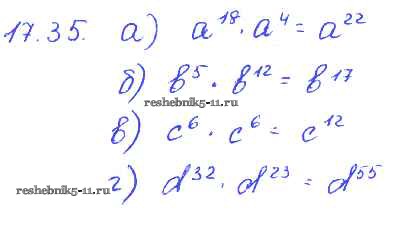 17.35. а) a¹⁸ · a⁴ = a²²
б) b⁵ · b¹² = b¹⁷
reshebnik5-11.ru
в) c⁶ · c⁶ = c¹²
reshebnik5-11.ru г) d³² · d²³ = d⁵⁵